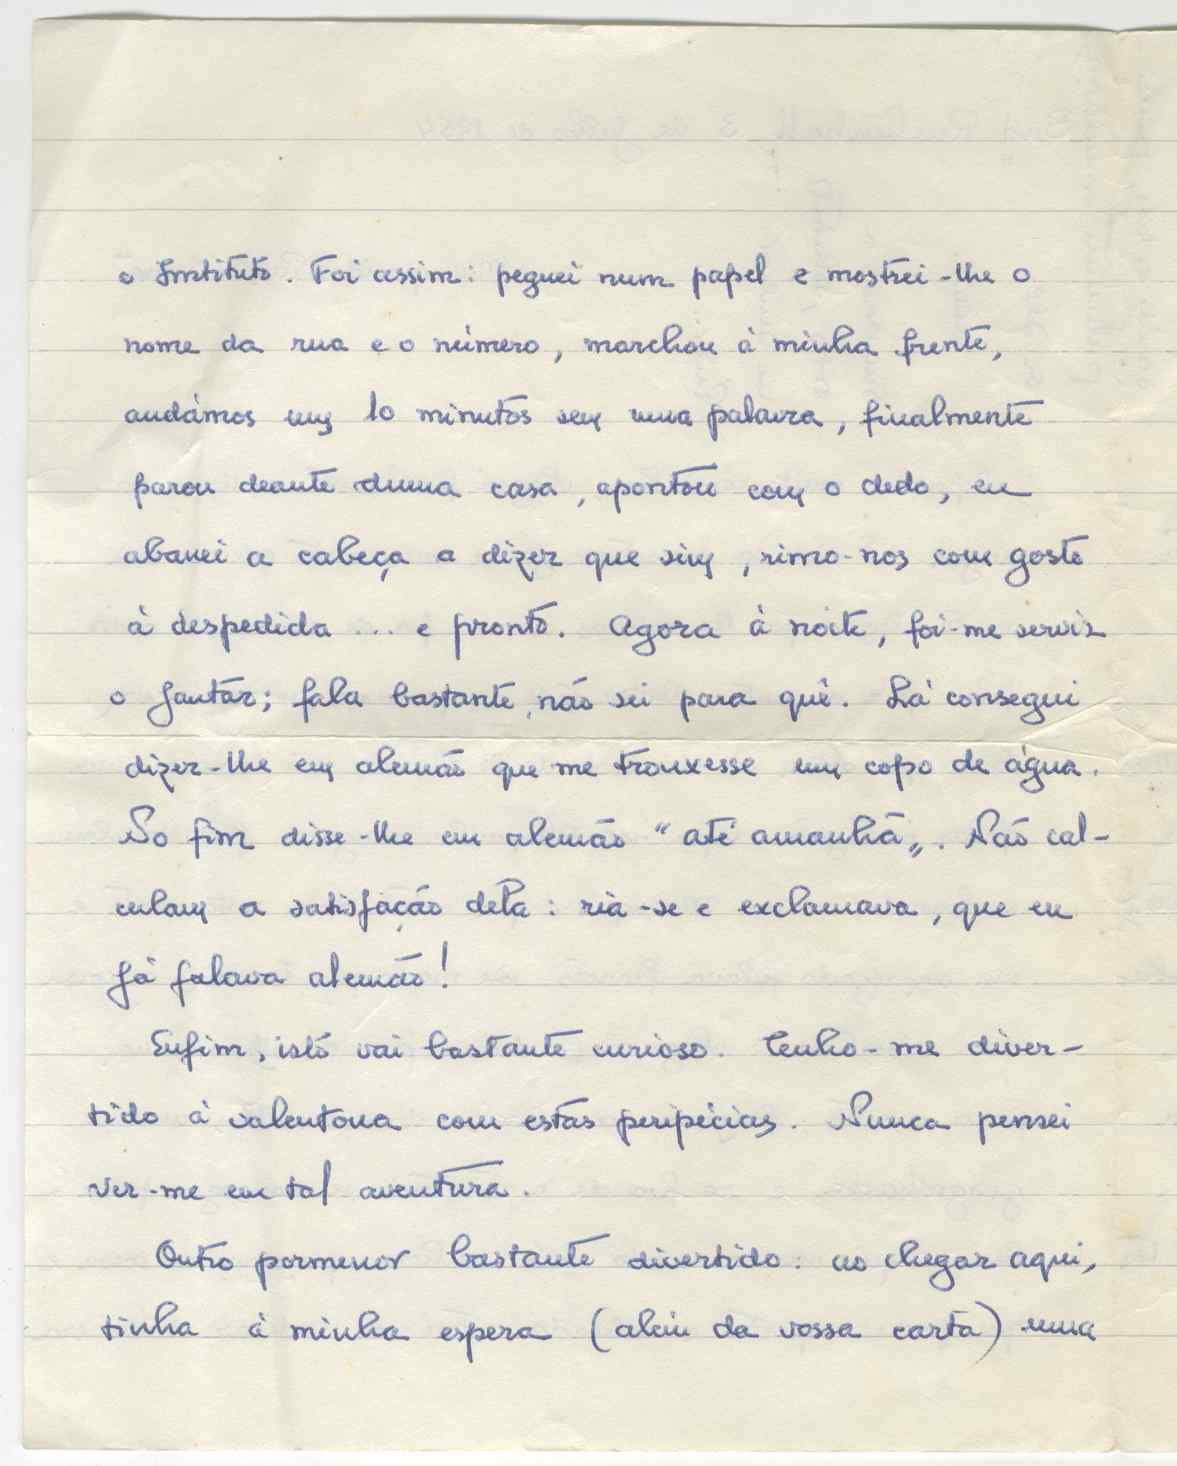 o Instituto. Foi assim: peguei num papel e mostrei-lhe o
nome da rua e o número, marchou à minha frente,
andámos uns 10 minutos sem uma palavra, finalmente
parou deante duma casa, apontou com o dedo, eu
abanei a cabeça a dizer que sim, rimo-nos com gosto
à despedida ... e pronto. Agora à noite, foi-me servir
o jantar; fala bastante, não sei para quê. Lá consegui
dizer-lhe em alemão que me trouxesse um copo de água.
No fim disse-lhe em alemão "até amanhã". Não cal-
culam a satisfação dela: ria-se e exclamava, que eu
já falava alemão!
Enfim, isto vai bastante curioso. Tenho-me diver-
tido à valentona com estas peripécias. Nunca pensei
ver-me em tal aventura.
Outro pormenor bastante divertido: ao chegar aqui,
tinha à minha espera (além da vossa carta) uma